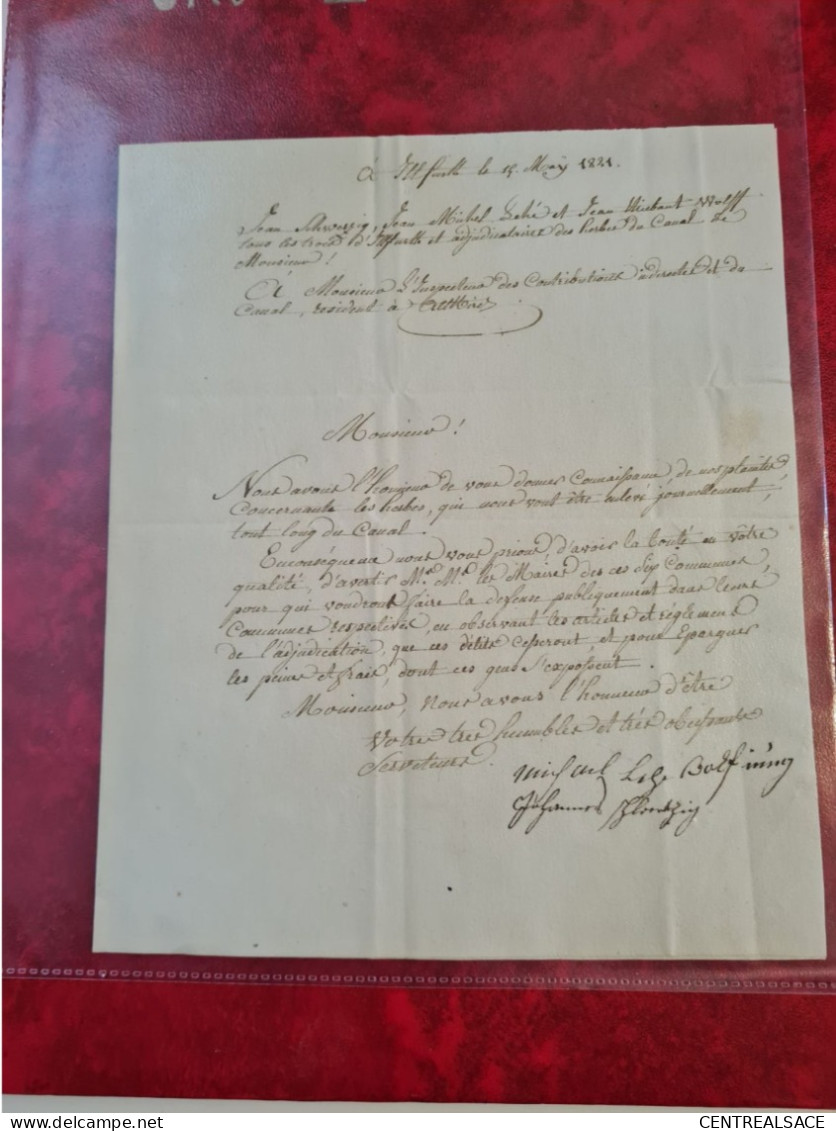 à Illfurth le 15. May 1821.
Jean Schwertzig, Jean Michel Lehé et Jean Thiébaut Wolff
tous les trois d'Illfurth et adjudicatrires des herbes du Canal de
Monsieur!
À Monsieur L'Inspecteur des Contributions inderectes et du
Canal, resident à Altkirch
Monsieur!
Nous avons l'honneur de vous donner Connaissance de nos plaintes
Concernante les herbes, qui nous sont être enlevé journellement,
tout long du Canal.
Enconséquence nous vous prions, d'avoir la bonté en vôtre
qualité, d'avertir Mr. Mr. les Maires des ces Six Communes,
pour qui voudront faire la defense publiquement dans leurs
Communes respectives, en observant les articles et réglemens
de l'adjudication, que ces délits cesseront, et pour Epargner
les peines et frais, dont ces gens s'exposent.
Monsieur, nous avons l'honneur d'être
Votre très humbles et très obeissants
Serviteurs.
Michael Lehe Wolf
Johannes Schwertzig
CENTREALSACE